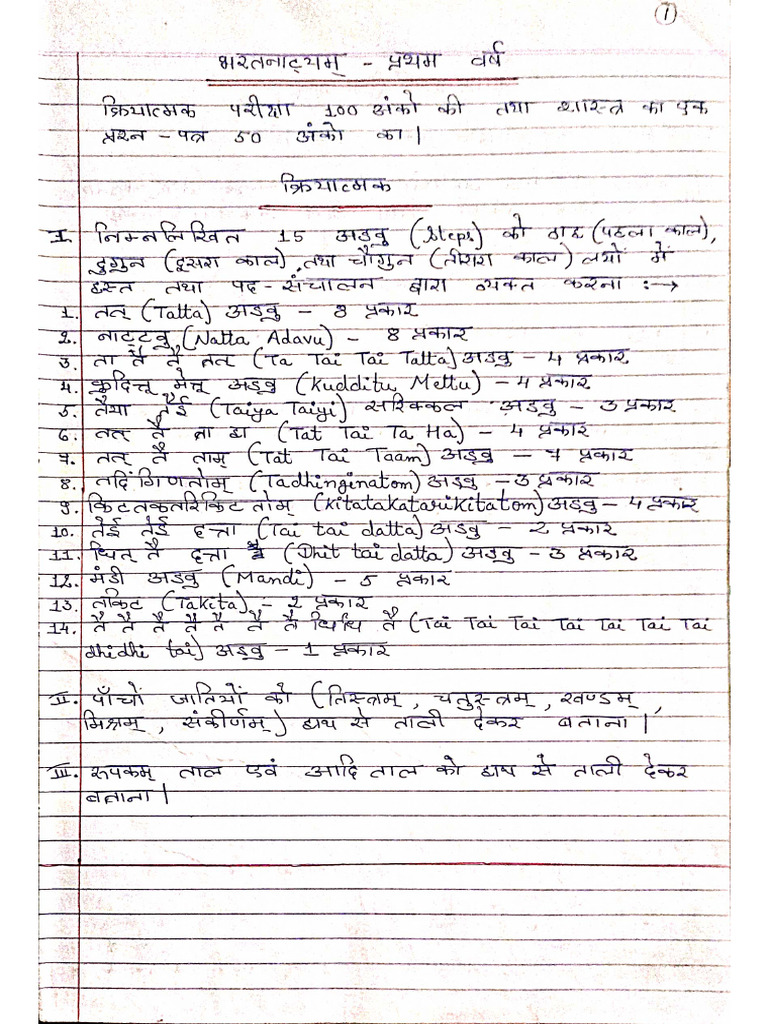 1
भरतनाट्यम् - प्रथम वर्ष
क्रियात्मक परीक्षा 100 अंको की तथा शास्त्र का एक
प्रश्न - पत्र 50 अंको का|
क्रियात्मक
I. निम्नलिखित 15 अड्वु (Steps) को ठाह (पहला काल),
दुगुन (दूसरा काल), तथा चौगुन (तीसरा काल) लयों में
हस्त तथा पद - संचालन द्वारा व्यक्त करना :→
1. तत् (Tatta) अड्वु - 8 प्रकार
2. नाट्टवु (Natta Adavu) - 8 प्रकार
3. ता तै तै तत् (Ta Tai Tai Tatta) अड्वु - 4 प्रकार
4. कुदित्तु मेत्तु अड्वु (Kudditu Mettu) - 4 प्रकार
5. तैया तैई (Taiya Taiyi) सरिक्कल अड्वु - 3 प्रकार
6. तत् तै ता हा (Tat Tai Ta Ha) - 4 प्रकार
7. तत् तै ताम् (Tat Tai Taam) अड्वु - 7 प्रकार
8. तदिंगिणतोम् (Tadhinginatom) अड्वु - 3 प्रकार
9. किटतकतरिकिटतोम् (Kitatakatarikitatom) अड्वु - 4 प्रकार
10. तेई तेई दत्ता (Tai tai datta) अड्वु - 2 प्रकार
11. धित् तै दत्ता (Dhit tai datta) अड्वु - 3 प्रकार
12. मंडी अड्वु (Mandi) - 5 प्रकार
13. तकिट (Takita) - 2 प्रकार
14. तै तै तै तै तै तै तै धिधि तै (Tai Tai Tai Tai Tai Tai Tai
dhidhi tai) अड्वु - 1 प्रकार
II. पाँचों जातियों को (तिस्त्रम् , चतुस्त्रम् , खण्डम् ,
मिश्रम् , संकीर्णम्) हाथ से ताली देकर बताना|
III. रूपकम् ताल एवं आदि ताल को हाथ से ताली देकर
बताना|